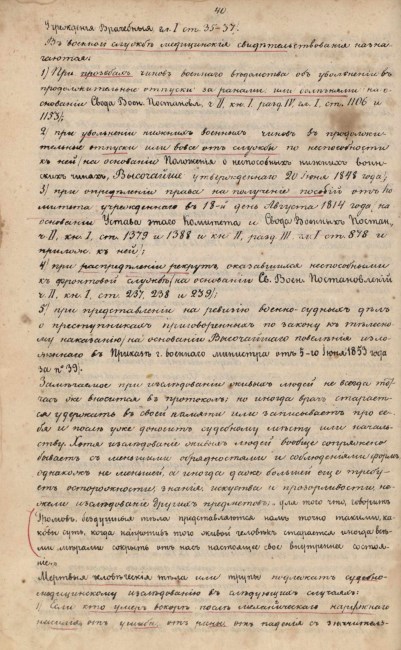 40
Учрежденiя Врачебныя гл. I ст. 35-37.
Въ военной службѣ медицинскiя свидѣтельствованiя назна-
чаются:
1) При прозьбахъ чиновъ военнаго вѣдомства объ увольненiи въ
продолжительные отпуски за ранами или болѣзнями на о-
снованiи Свода Воен. Постановл. ч. II, кн. I, разд. IV, гл. I, ст. 1106 и
1153);
2) при увольненiи нижнихъ военныхъ чиновъ въ продолжи-
тельные отпуски или вовсе отъ службы по неспособности
къ ней (на основанiи Положенiя о неспособныхъ нижнихъ воин-
скихъ чинахъ, Высочайше утвержденнаго 20 Iюня 1848 года);
3) при опредѣленiи права на полученiе пособiй отъ Ко-
митета учрежденнаго въ 18-й день Августа 1814 года, на
основанiи Устава этаго Комитета и Свода Военныхъ Постан.
ч. II, кн. I, ст. 1379 и 1388 и кн. II, разд. III гл. I ст. 878 и
прилож. къ ней);
4) при распредѣленiи рекрутъ, оказавшихся неспособными
къ фронтовой службѣ (на основанiи Св. Воен. Постановленiй
ч. II, кн. I, ст. 237, 238 и 239);
5) при представленiи на ревизiю военно-судныхъ дѣлъ
о преступникахъ приговоренныхъ по закону къ тѣлесно-
му наказанiю) на основанiи Высочайшаго повелѣнiя изло-
женнаго въ Приказѣ г. военнаго министра отъ 5-го Iюня 1853 года
за № 39).
Замѣчаемое при изслѣдованiи живыхъ людей не всегда то-
часъ же вносится въ протоколъ; но иногда врачъ старается
удержать въ своей памяти или записываетъ про се-
бя и послѣ уже доноситъ судебному мѣсту или началь-
ству. Хотя изслѣдованiе живыхъ людей вообще сопряжено
бываетъ съ меньшими обрядностями и соблюденiями формъ
однакожъ не меньшей, а иногда даже большей еще требу-
етъ осторожности, знанiя, искуства и прозорливости не-
жели изслѣдованiе другихъ предметовъ; "для того что, говоритъ
Громовъ, бездушныя тѣла представляются намъ точно такими, ка-
ковы суть, когда напротивъ того живой человѣкъ старается иногда всѣ-
ми мѣрами сокрыть отъ насъ настоящее свое внутреннее состоя-
нiе".
Мертвыя человѣческiя тѣла или трупы подлежатъ судебно-
медицинскому изслѣдованiю въ слѣдующихъ случаяхъ:
1) Если кто умеръ вскорѣ послѣ механическаго наружнаго
насилiя отъ ушиба, отъ раны отъ паденiя съ значитель-